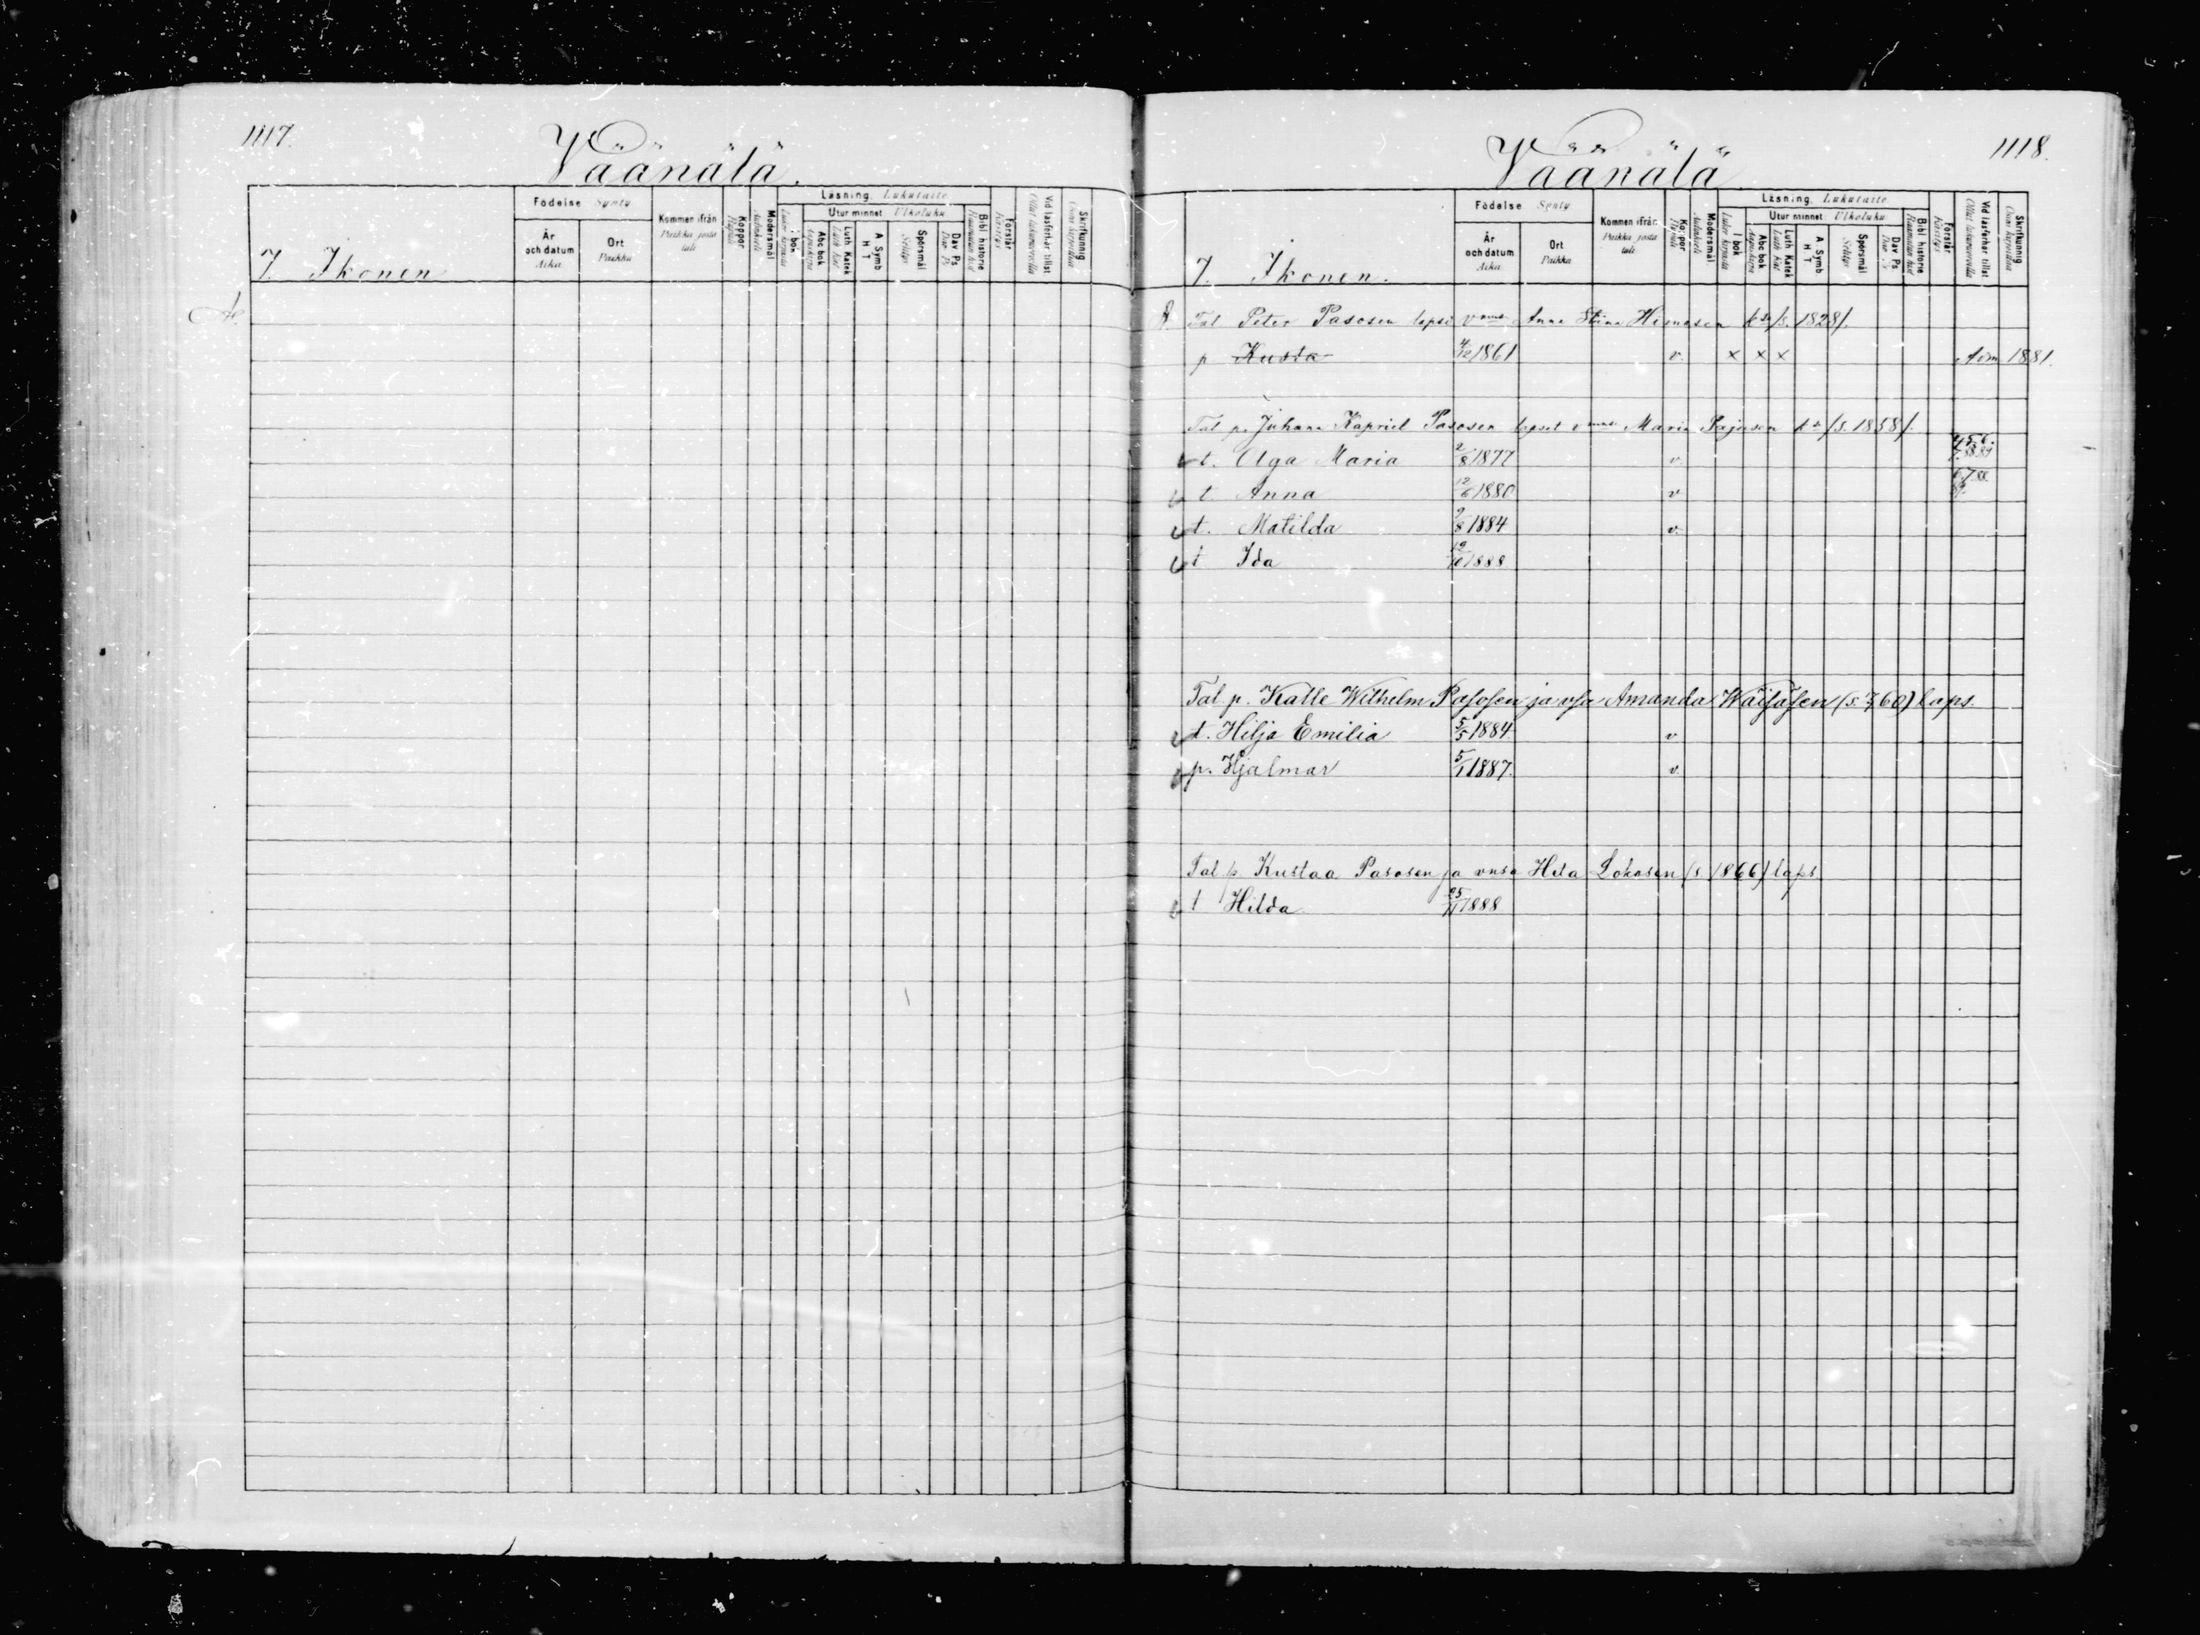 1117.
Väänälä.
Födelse Synty
År och datum Aika
Ort Paikka
Kommen ifrån Paikka josta tuli
Koppor
Modersmål
Läsning. Lukutaito
I bok
Utur minnet Ulkoluku
Abc bok
Luth. Katek
A Symb H T
Spörsmål
Dav. Ps
Bibl historie
Förstår
Vid läsförhör tillst
Skrifkunnig
7. Ikonen
1118.
Väänälä
Födelse Synty
År och datum Aika
Ort Paikka
Kommen ifrån Paikka josta tuli
Koppor
Modersmål
Läsning. Lukutaito
I bok
Utur minnet Ulkoluku
Abc bok
Luth Katek
A Symb H T
Spörsmål
Dav Ps
Bibl historie
Förstår
Vid läsförhör tillst
Skrifkunnig
7. Ikonen.
Tal Peter Pasosen lapsi Anna Stina /s. 1828/.
p Kusta 4/12 1861 v. x x x Adm. 1881.
Tal p. Juhana Kapriel Pasosen lapset Maria Pajusen /s. 1858/.
t. Olga Maria 2/8 1877 v.
t Anna 12/6 1880 v
t. Matilda 9/8 1884 v.
t Ida 1888
Tal p. Kalle Wilhelm Pasosen ja vsa Amanda Wäisäsen (s. 7/7 60) laps.
t. Hilja Emilia 5/5 1884. v
p. Hjalmar 5/1 1887. v.
Tal p. Kustaa Pasosen ja vnsa Heta Lokasen (s 1866) laps
t Hilda 25/11 1888